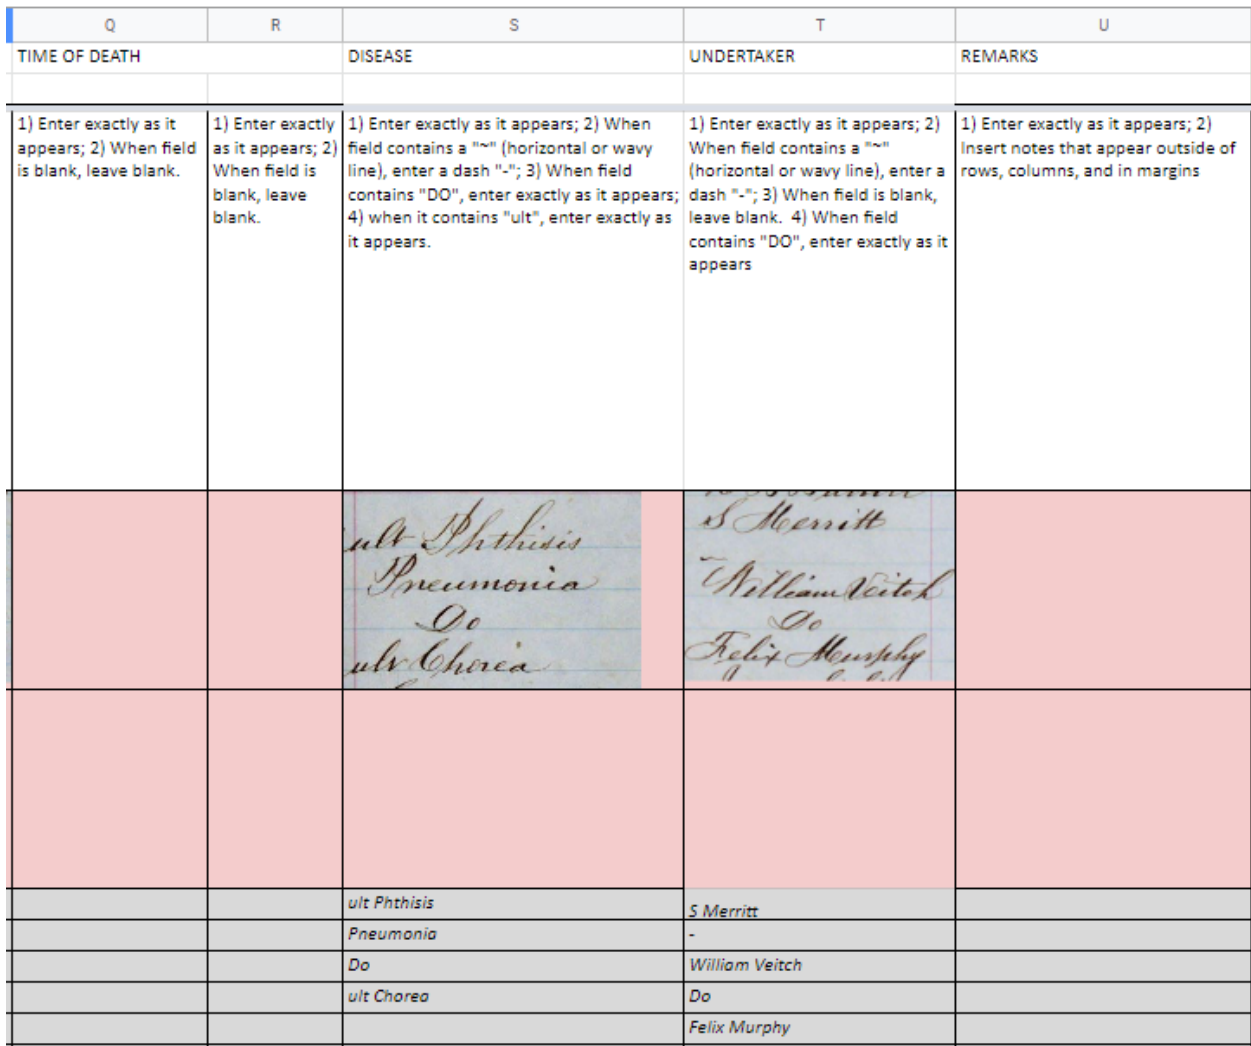 Q R S T U
TIME OF DEATH DISEASE UNDERTAKER REMARKS
1) Enter exactly as it
appears; 2) When field
is blank, leave blank.
1) Enter exactly
as it appears; 2)
When field is
blank, leave
blank.
1) Enter exactly as it appears; 2) When
field contains a "~" (horizontal or wavy
line), enter a dash "-"; 3) When field
contains "DO", enter exactly as it appears;
4) when it contains "ult", enter exactly as
it appears.
1) Enter exactly as it appears; 2)
When field contains a "~"
(horizontal or wavy line), enter a
dash "-"; 3) When field is blank,
leave blank. 4) When field
contains "DO", enter exactly as it
appears
1) Enter exactly as it appears; 2)
Insert notes that appear outside of
rows, columns, and in margins
ult Phthisis
Pneumonia
Do
ult Chorea
S Merritt
~
William Veitch
Do
Felix Murphy
ult Phthisis S Merritt
Pneumonia -
Do William Veitch
ult Chorea Do
Felix Murphy